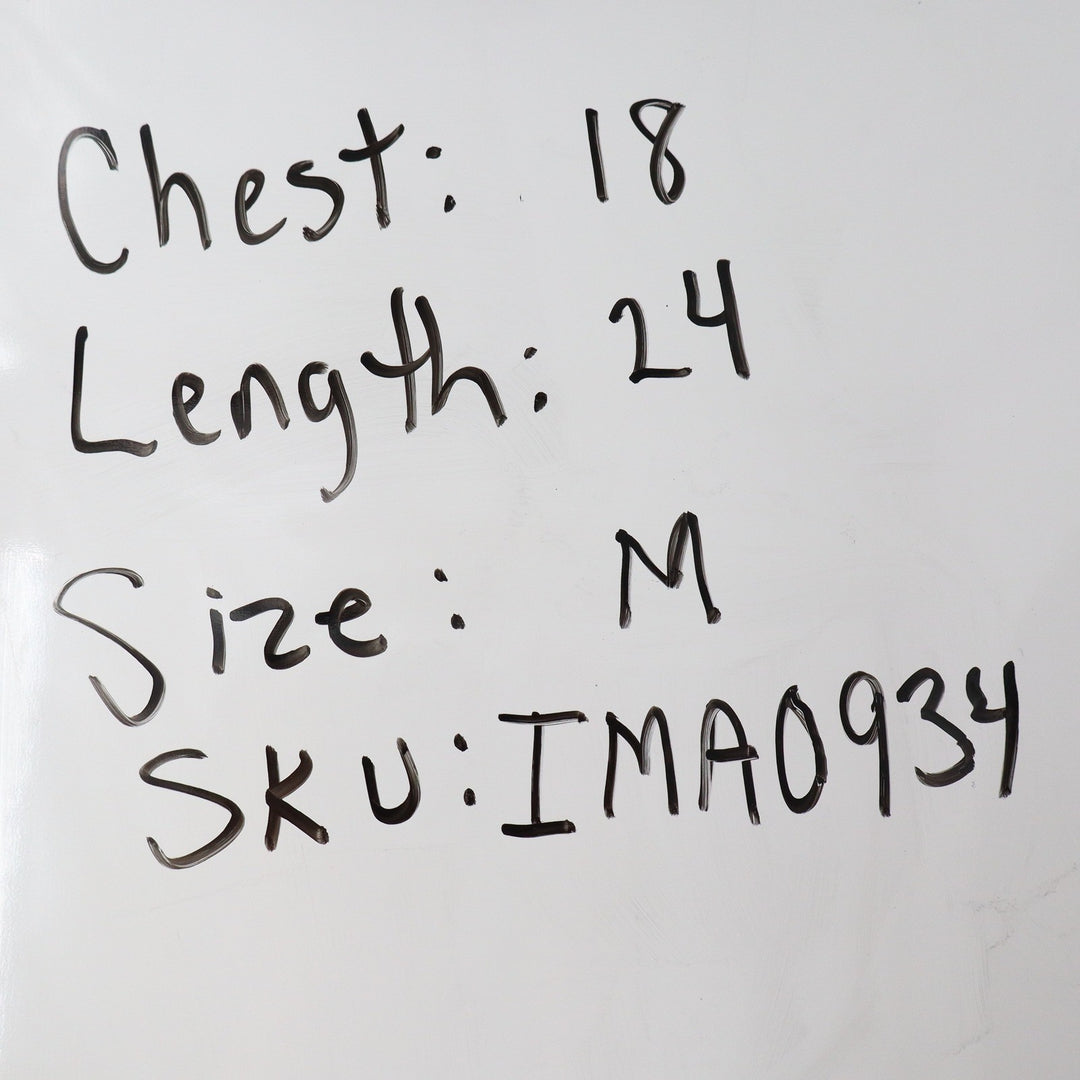 Chest: 18
Length: 24
Size: M
SKU: IMA0934